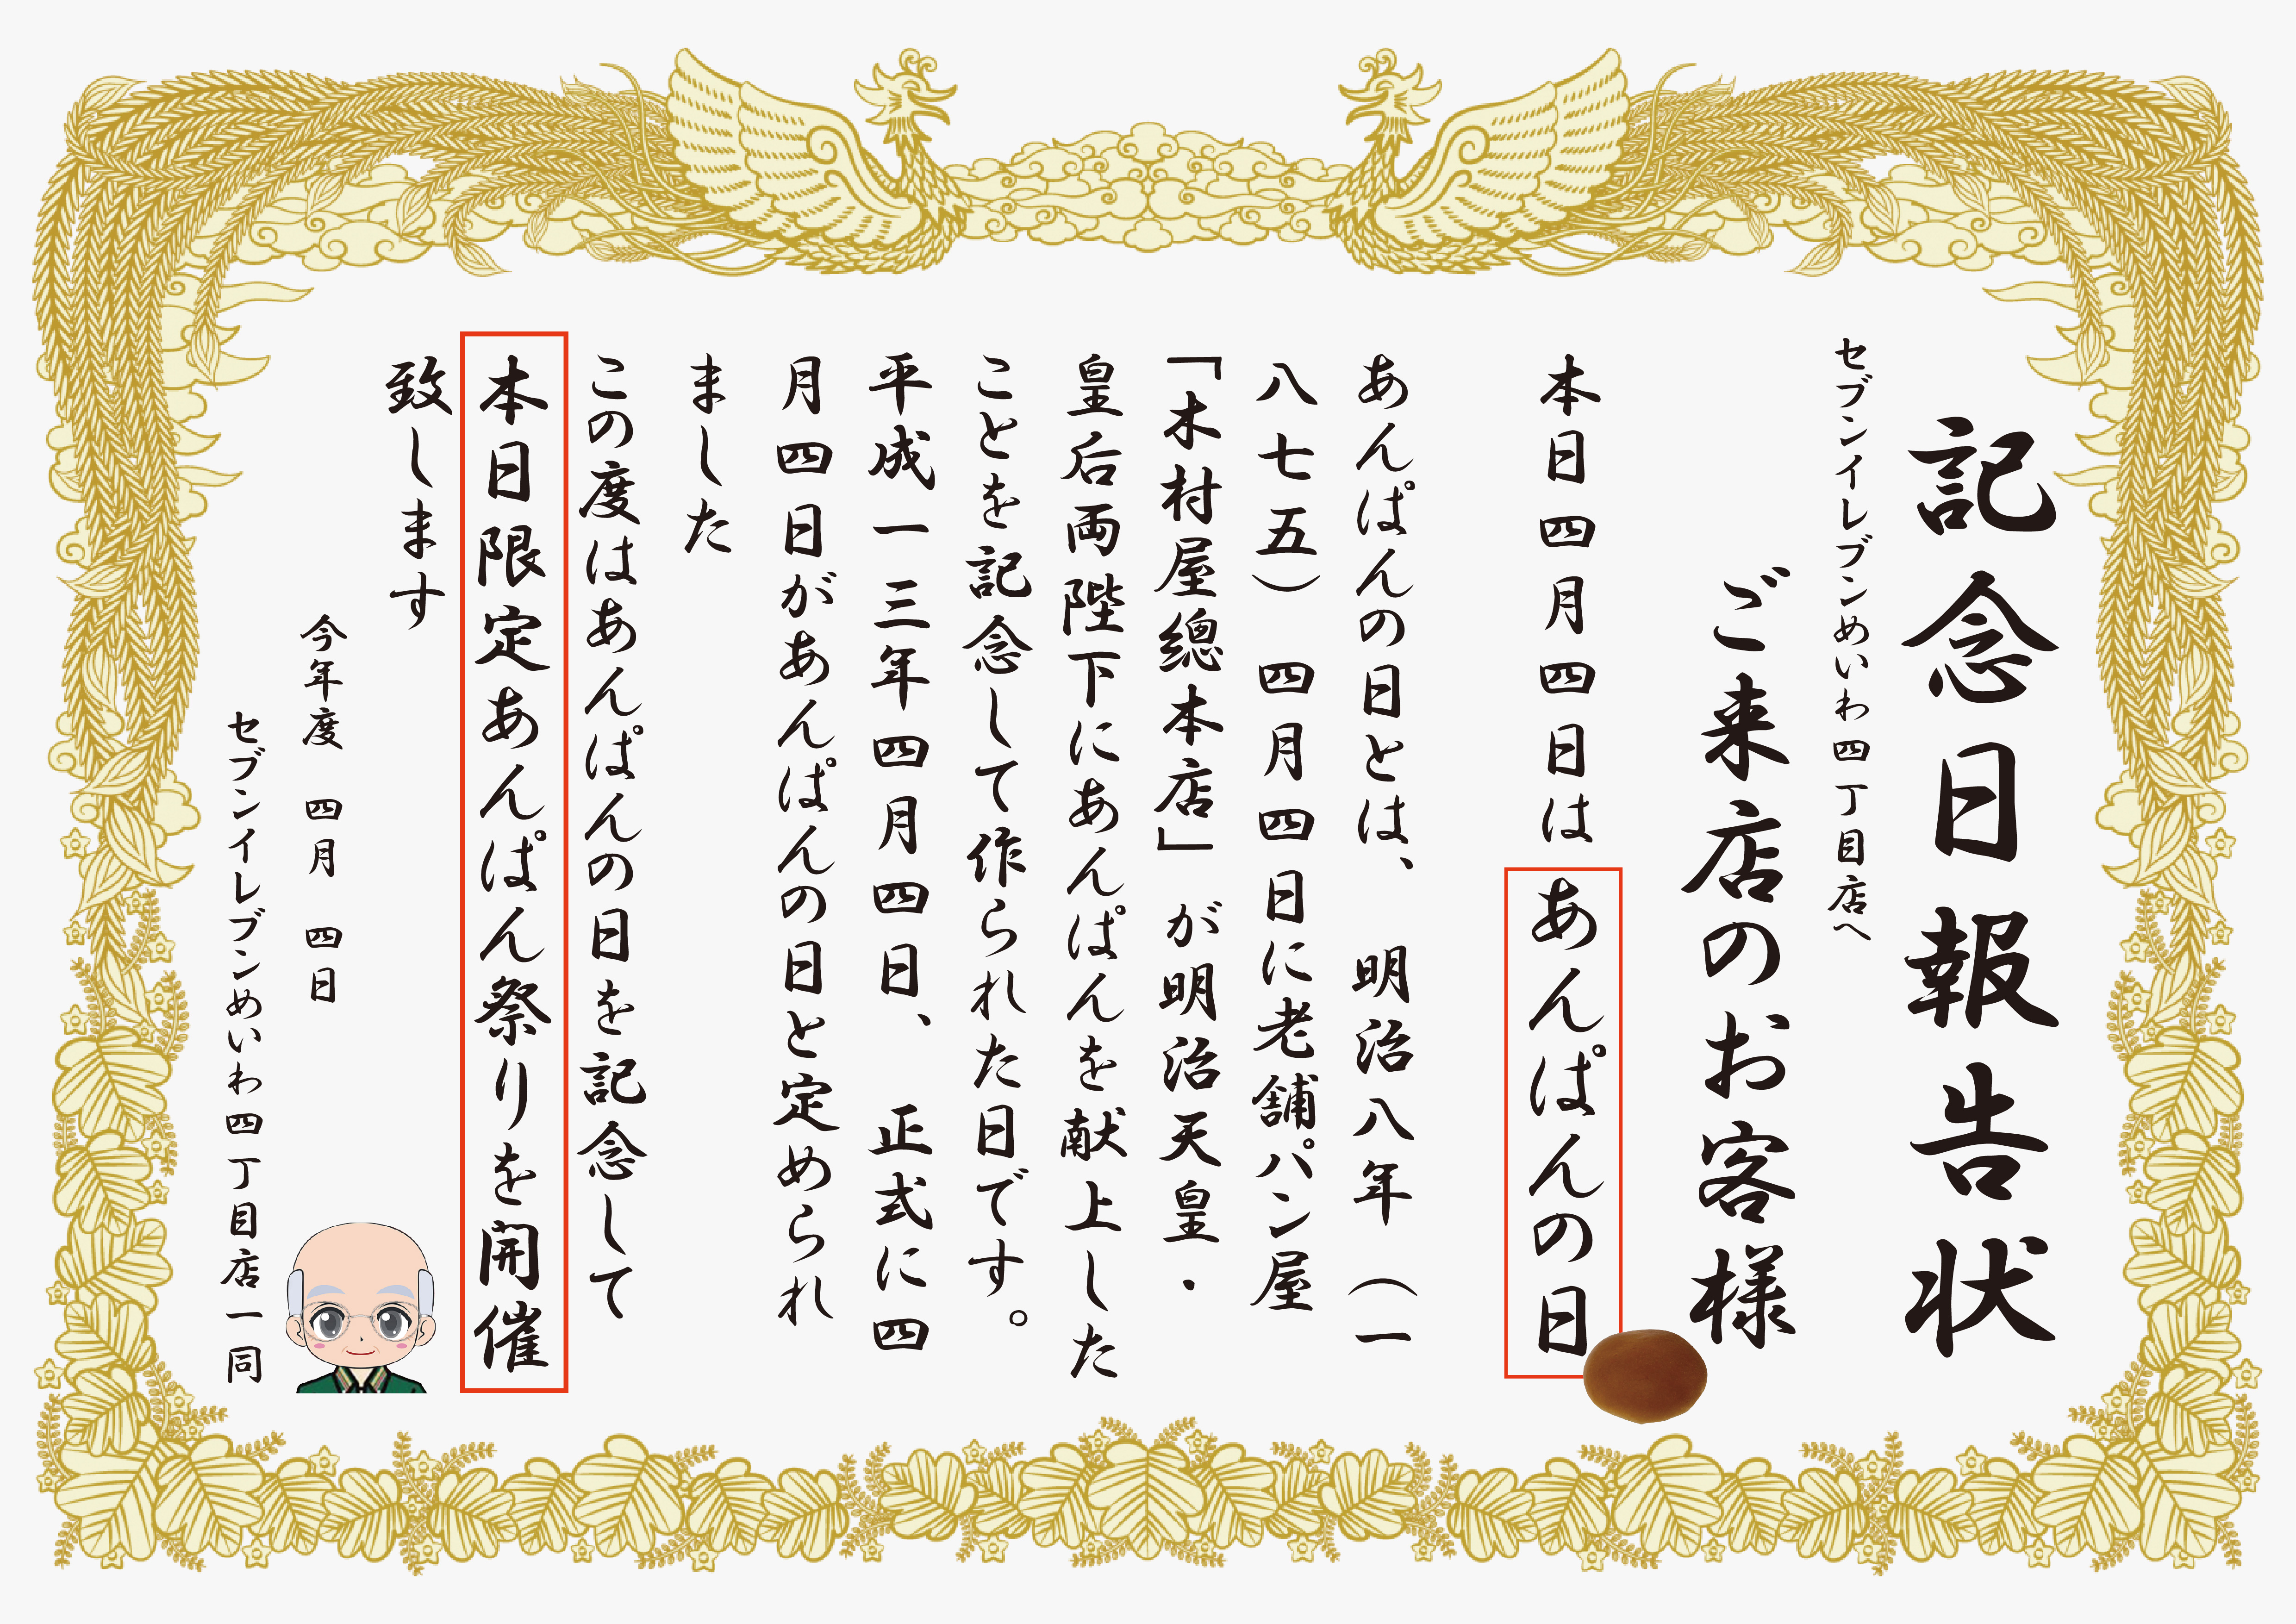 記念日報告状
セブンイレブンめいわ四丁目店へ
ご来店のお客様
本日四月四日はあんぱんの日
あんぱんの日とは、　明治八年（一
八七五）四月四日に老舗パン屋
「木村屋總本店」が明治天皇・
皇后両陛下にあんぱんを献上した
ことを記念して作られた日です。
平成一三年四月四日、　正式に四
月四日があんぱんの日と定められ
ました
この度はあんぱんの日を記念して
本日限定あんぱん祭りを開催
致します
今年度　四月　四日
セブンイレブンめいわ四丁目店一同